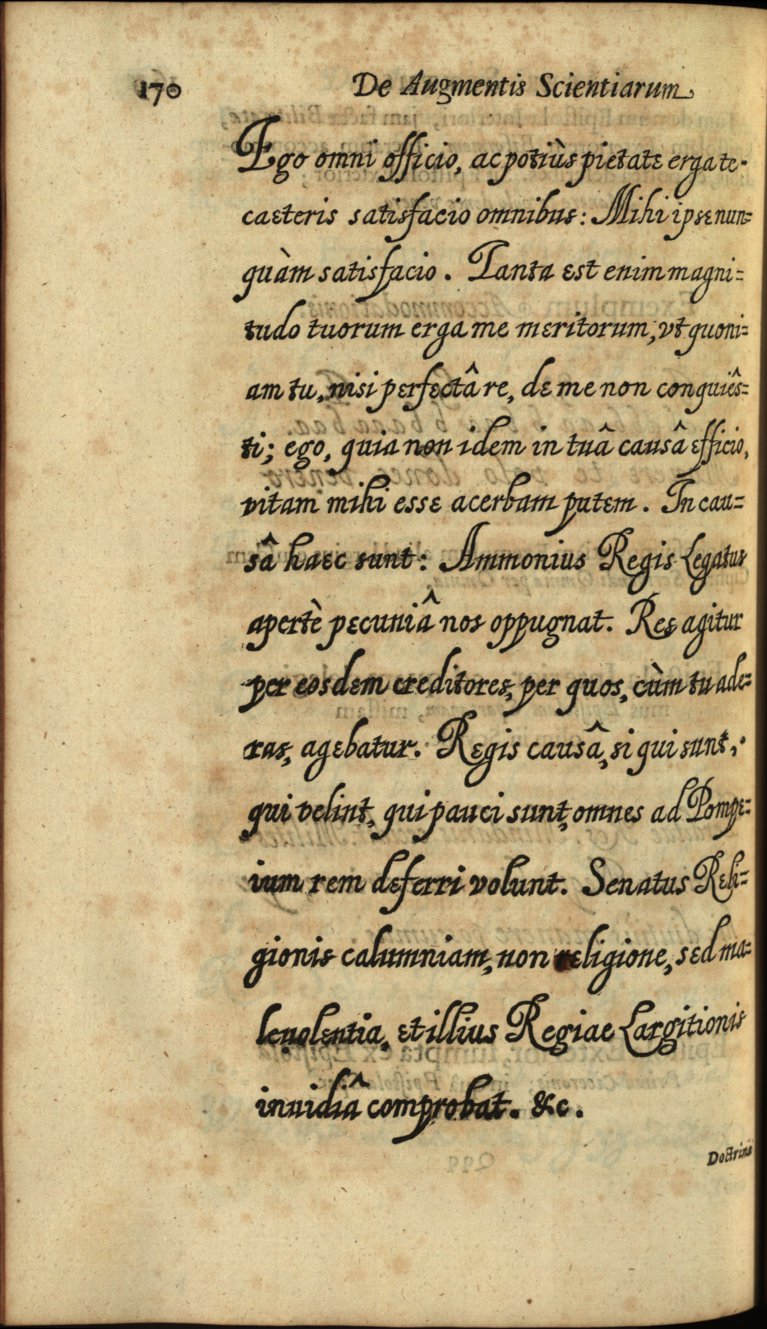 170 De Augmentis Scientiarum
Ego omni officio, ac potiùs pietate erga te
caeteris satisfacio omnibus: Mihi ipse nun=
quàm satisfacio. Tanta est enim magni=
tudo tuorum erga me meritorum, vt quoni=
am tu, nisi perfectâ re, de me non conquiês=
ti; ego, quia non idem in tuâ causâ efficio,
vitam mihi esse acerbam putem. In cau=
sâ haec sunt: Ammonius Regis Legatus
apertè pecuniâ nos oppugnat. Res agitur
per eosdem creditores, per quos, cùm tu ade=
ras, agebatur. Regis causâ, si qui sunt,
qui velint, qui pauci sunt, omnes ad Pompe=
ium rem deferri volunt. Senatus Reli=
gionis calumniam, non religione, sed ma=
leuolentia, et illius Regiae Largitionis
inuidiâ comprobat. &c.
Doctrina